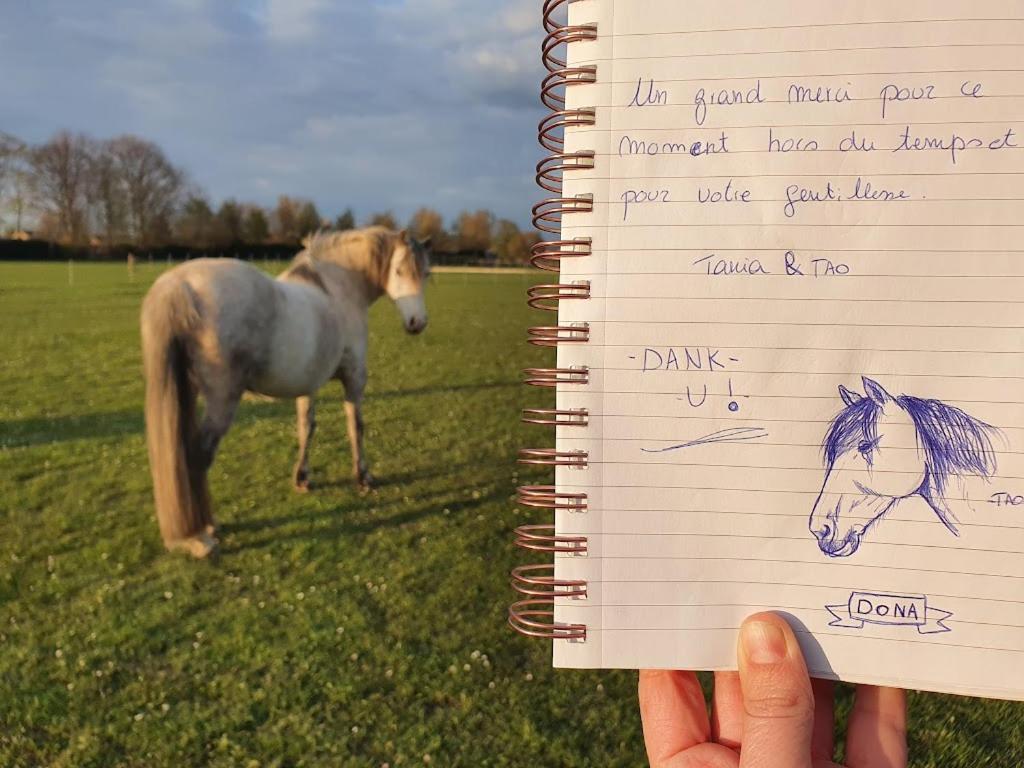 Un grand merci pour ce
moment hors du temps et
pour votre gentillesse.
Tania & TAO
- DANK -
- U !
TAO
DONA